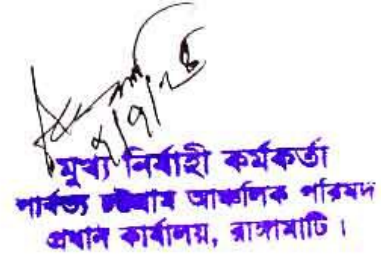 ৮/৭/২৫
মুখ্য নির্বাহী কর্মকর্তা
পার্বত্য চট্টগ্রাম আঞ্চলিক পরিষদ
প্রধান কার্যালয়, রাঙ্গামাটি ।